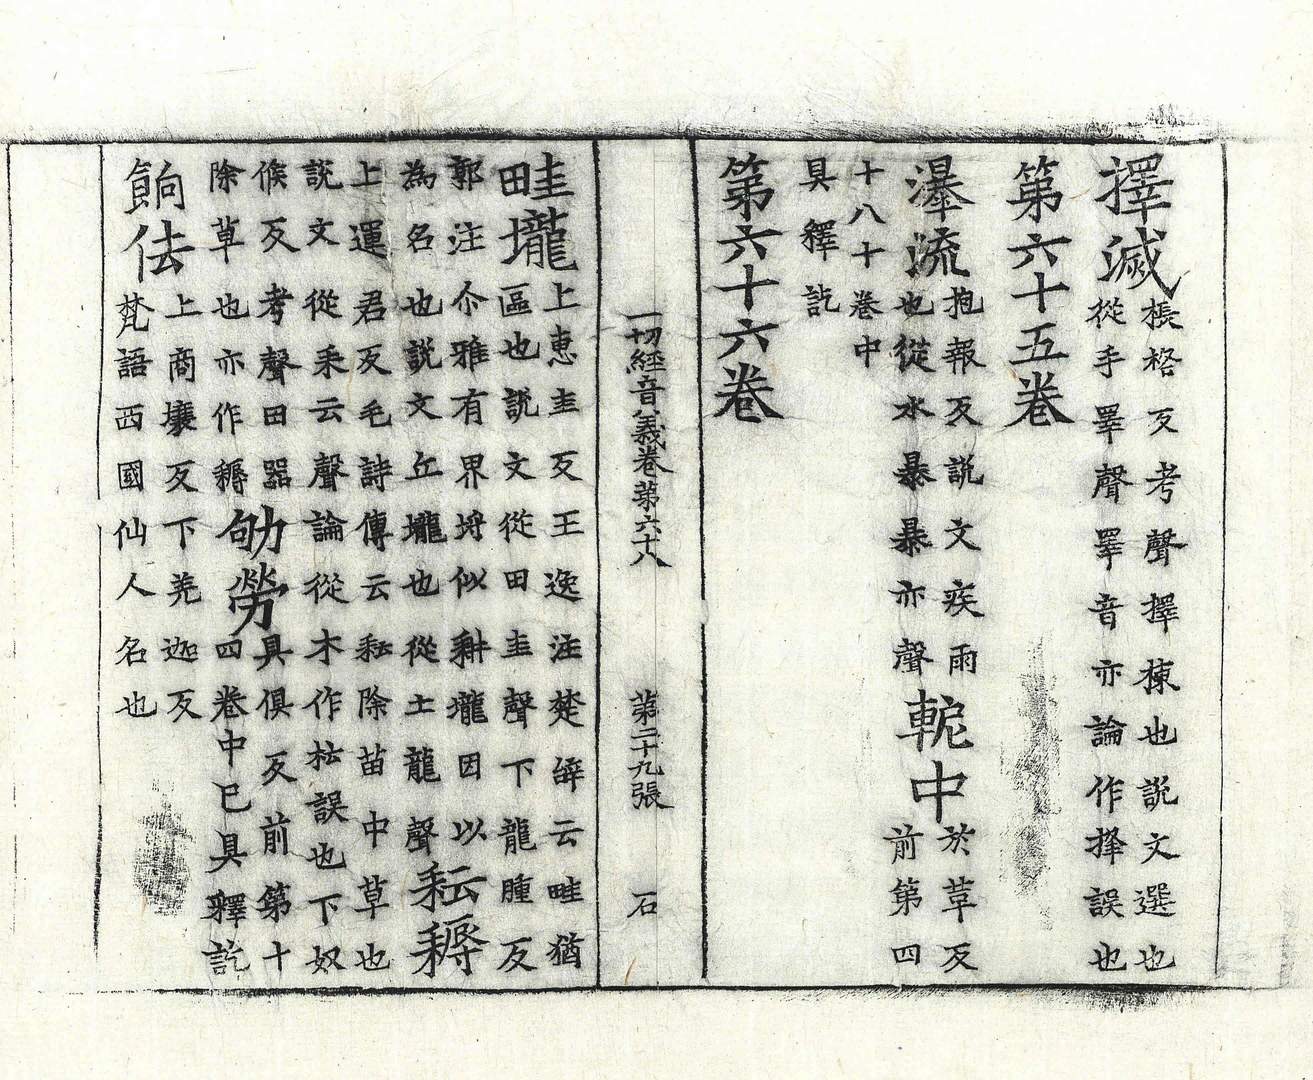 擇滅
棖格反考聲擇棟也說文選也
從手睪聲睪音亦論作擇誤也
第六十五卷
瀑流
抱報反說文疾雨
也從水暴暴亦聲
軶中
於革反
前第四
十八十卷中
具釋訖
第六十六卷
一切經音義卷第六十八 第二十九張 石
畦壠
上惠圭反王逸注楚辝云畦猶
區也說文從田圭聲下龍腫反
郭注尒雅有界埒似耕壠因以
為名也說文丘壠也從土龍聲
耘耨
上運君反毛詩傳云耘除苗中草也
說文從耒云聲論從木作枟誤也下奴
候反考聲田器
除草也亦作耨
劬勞
具俱反前第十
四卷中已具釋訖
餉佉
上商壤反下羌迦反
梵語西國仙人名也